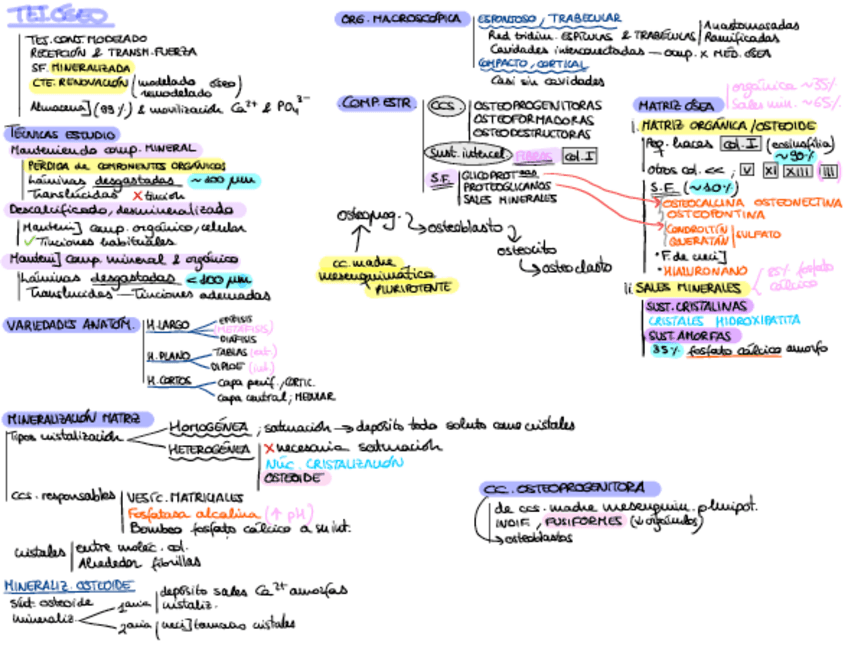 TEJ. ÓSEO
TEJ. CONJ. MODELADO
RECEPCIÓN & TRANSM. FUERZA
SF. MINERALIZADA
CTE. RENOVACIÓN (modelado óseo)
remodelado
Almacena] (99%) & movilización Ca²⁺ & PO₄³⁻
TÉCNICAS ESTUDIO
Manteniendo comp. MINERAL
PÉRDIDA de COMPONENTES ORGÁNICOS
Láminas desgastadas ~100 µm
Translúcidas X tinción
Descalcificado, desmineralizado
Manten] comp. orgánico/celular
✓ Tinciones habituales
Manten] comp mineral & orgánico
Láminas desgastadas <100 µm
Translúcidas — Tinciones adecuadas
VARIEDADES ANATÓM.
H. LARGO
EPÍFISIS
(METÁFISIS)
DIÁFISIS
H. PLANO
TABLAS (ext.)
DIPLOE (int.)
H. CORTOS
capa perif., CORTIC.
capa central, MEDULAR
MINERALIZACIÓN MATRIZ
Tipos cristalización
HOMOGÉNEA ; saturación → depósito todo soluto como cristales
HETEROGÉNEA X necesaria saturación
NÚC. CRISTALIZACIÓN
OSTEOIDE
CCS. responsables
VESÍC. MATRICIALES
Fosfatasa alcalina (↑ pH)
Bombeo fosfato cálcico a su int.
cristales
entre moléc. col.
Alrededor fibrillas
MINERALIZ. OSTEOIDE
Sust. osteoide
mineraliz
1aria
depósito sales Ca²⁺ amorfas
cristaliz.
2aria
creci] tamaño cristales
ORG. MACROSCÓPICA
ESPONJOSO, TRABECULAR
Red tridim. ESPÍCULAS & TRABÉCULAS
Anastomosadas
Ramificadas
Cavidades interconectadas — comp. x MÉD. ÓSEA
COMPACTO, CORTICAL
Casi sin cavidades
COMP. ESTR.
CCS.
OSTEOPROGENITORAS
OSTEOFORMADORAS
OSTEODESTRUCTORAS
Sust. intercel
FIBRAS col. I
S.F.
GLICOPROT
PROTEOGLICANOS
SALES MINERALES
osteoprog. → osteoblasto
osteocito
osteoclasto
cc. madre
mesenquimática
PLURIPOTENTE
MATRIZ ÓSEA
orgánica ~35%
Sales min. ~65%
i. MATRIZ ORGÁNICA/OSTEOIDE
col. I (eosinofilia)
~90%
otros col. <<, V XI XIII III
S.F. (~10%)
OSTEOCALCINA OSTEONECTINA
OSTEOPONTINA
CONDROITÍN
QUERATÁN
SULFATO
• F. de creci]
• HIALURONANO
ii. SALES MINERALES
85% fosfato
cálcico
SUST. CRISTALINAS
CRISTALES HIDROXIPATITA
SUST. AMORFAS
35% fosfato cálcico amorfo
CC. OSTEOPROGENITORA
de ccs. madre mesenquim. pluripot.
INDIF, FUSIFORMES (↓ orgánulos)
→ osteoblastos